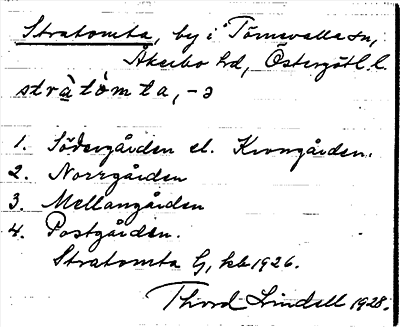 Stratomta, by i Törnevalla sn,
Åkerbo hd, Östergötl. l.
stràtòmta, -ə
1. Södergården el. Krongården.
2. Norrgården
3. Mellangården
4. Postgården.
Stratomta G, kb 1926.
Thord Lindell 1928.